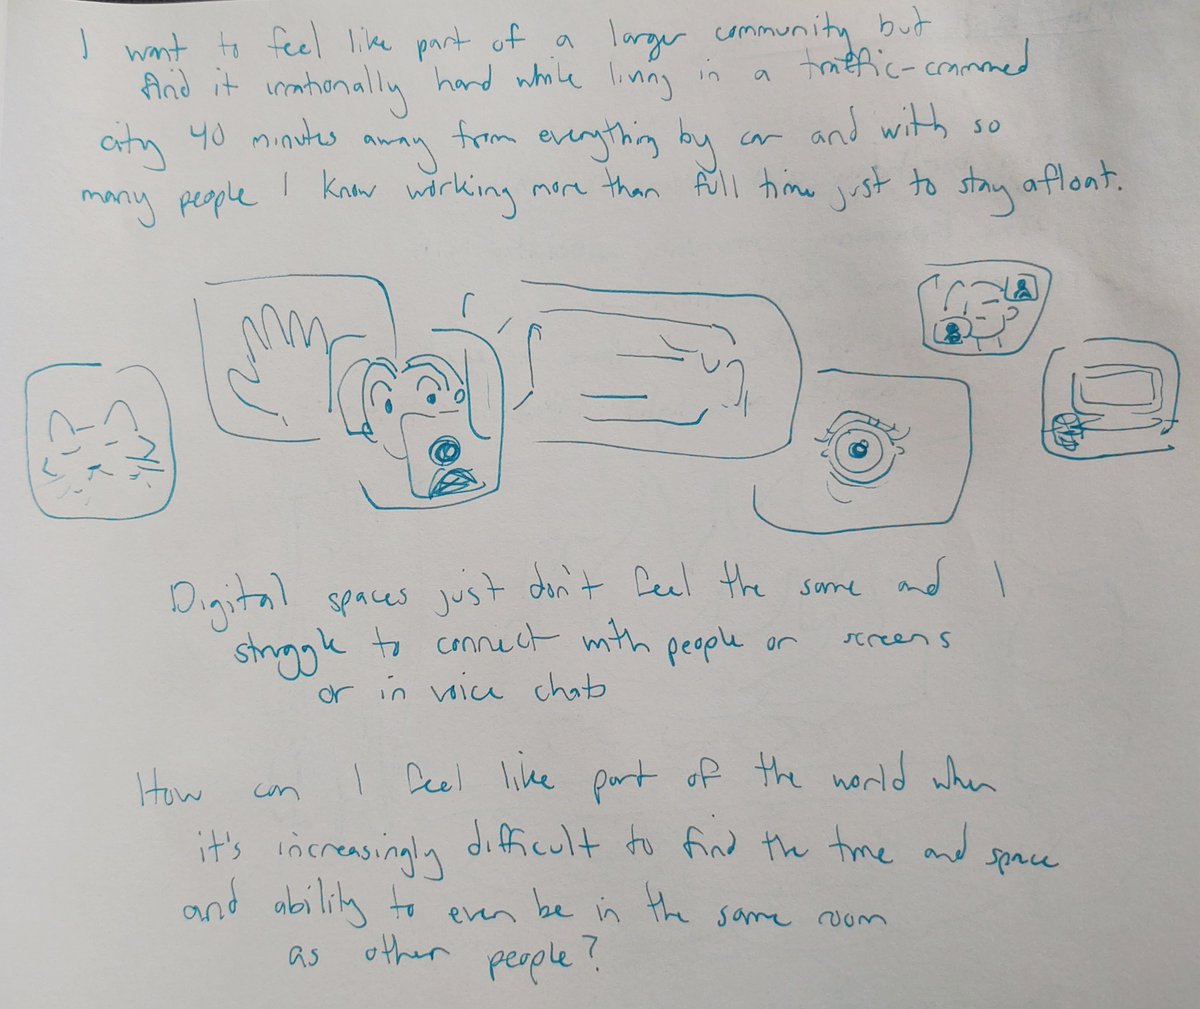 I want to feel like part of a larger community but
find it irrationally hard while living in a traffic-crammed
city 40 minutes away from everything by car and with so
many people I know working more than full time just to stay afloat.
Digital spaces just don't feel the same and I
struggle to connect with people on screens
or in voice chats
How can I feel like part of the world when
it's increasingly difficult to find the time and space
and ability to even be in the same room
as other people?